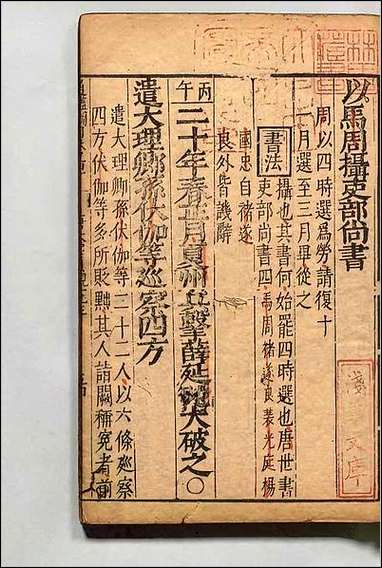 以馬周攝吏部尚書
周以四時選為勞請復十
一月選至三月畢從之
書法
攝也其書何始罷四時選也唐世書
吏部尚書四馬周褚遂良裴光庭楊
國忠自褚遂
良外皆譏辭
丙午
二十年春正月夏州兵擊薛延陀大破之○
遣大理卿孫伏伽等巡察四方
遣大理卿孫伏伽等二十二人以六條巡察
四方伏伽等多所貶黜其人詣闕稱冤者前
淺文庫